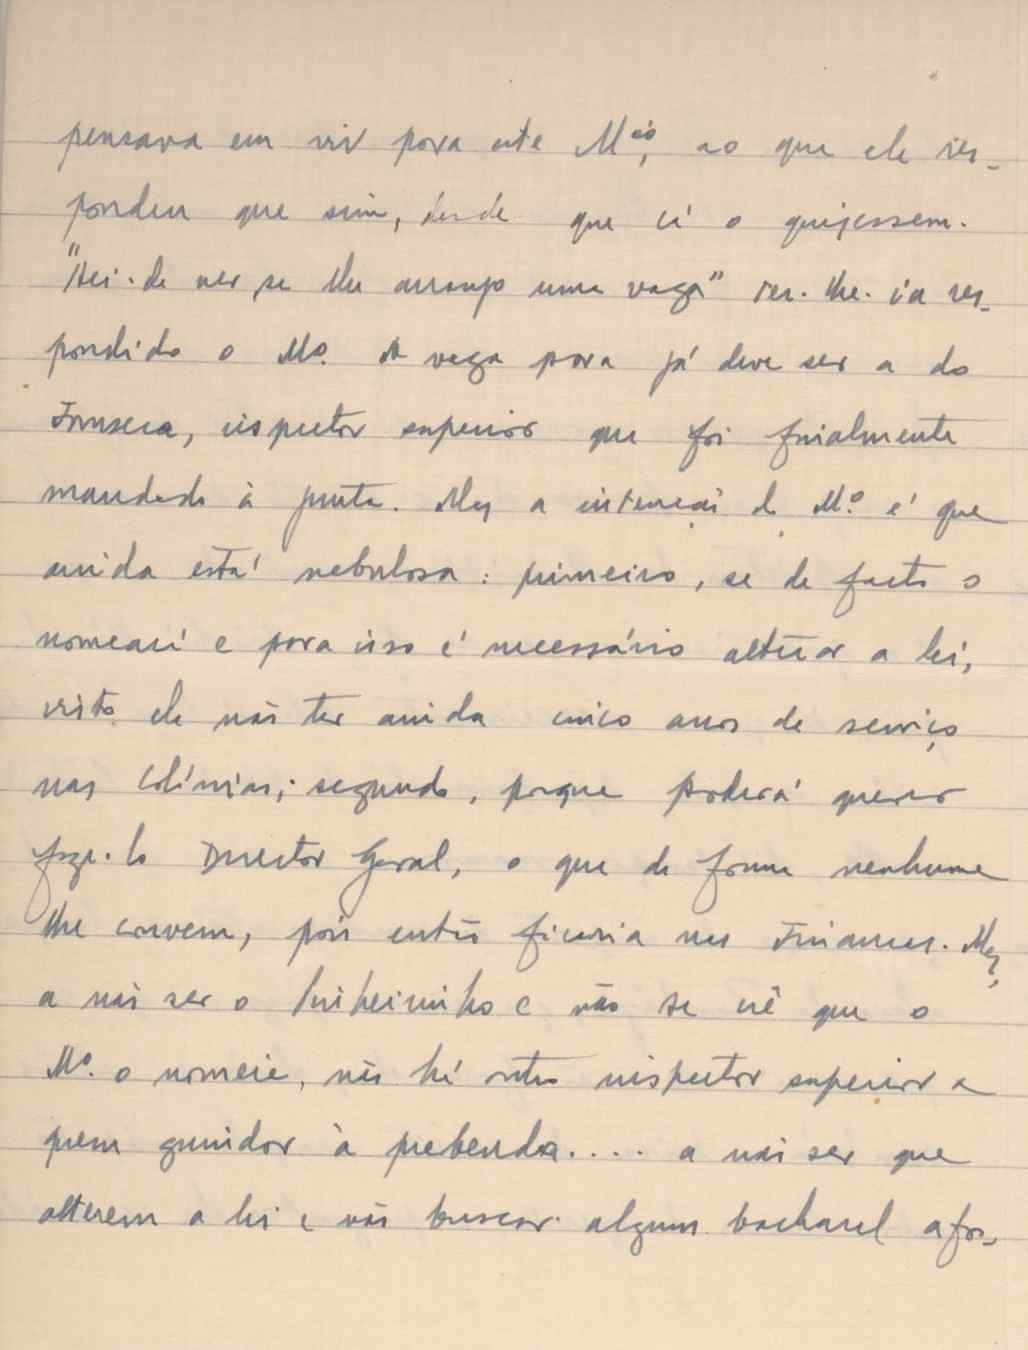 pensava em vir para este M.ério, ao que ele res-
pondeu que sim, desde que cá o quizessem.
"Hei-de ver se lhe arranjo uma vaga" ter-lhe-ia res-
pondido o Mo. A vaga para já deve ser a do
Fonseca, inspector superior que foi finalmente
mandado à junta. Mas a intenção do Mo. é que
ainda está nebulosa: primeiro, se de facto o
nomeará e para isso é necessário alterar a lei,
visto ele não ter ainda cinco anos de serviço
nas colónias; segundo, porque poderá querer
faze-lo Director Geral, o que de forma nenhuma
lhe convem, pois então ficaria nas Finanças. Mas,
a não ser o e não se vê que o
Mo. o nomeie, não há outro inspector superior a
quem guindar à prebenda.... a não ser que
alterem a lei e vão buscar algum bacharel afi-